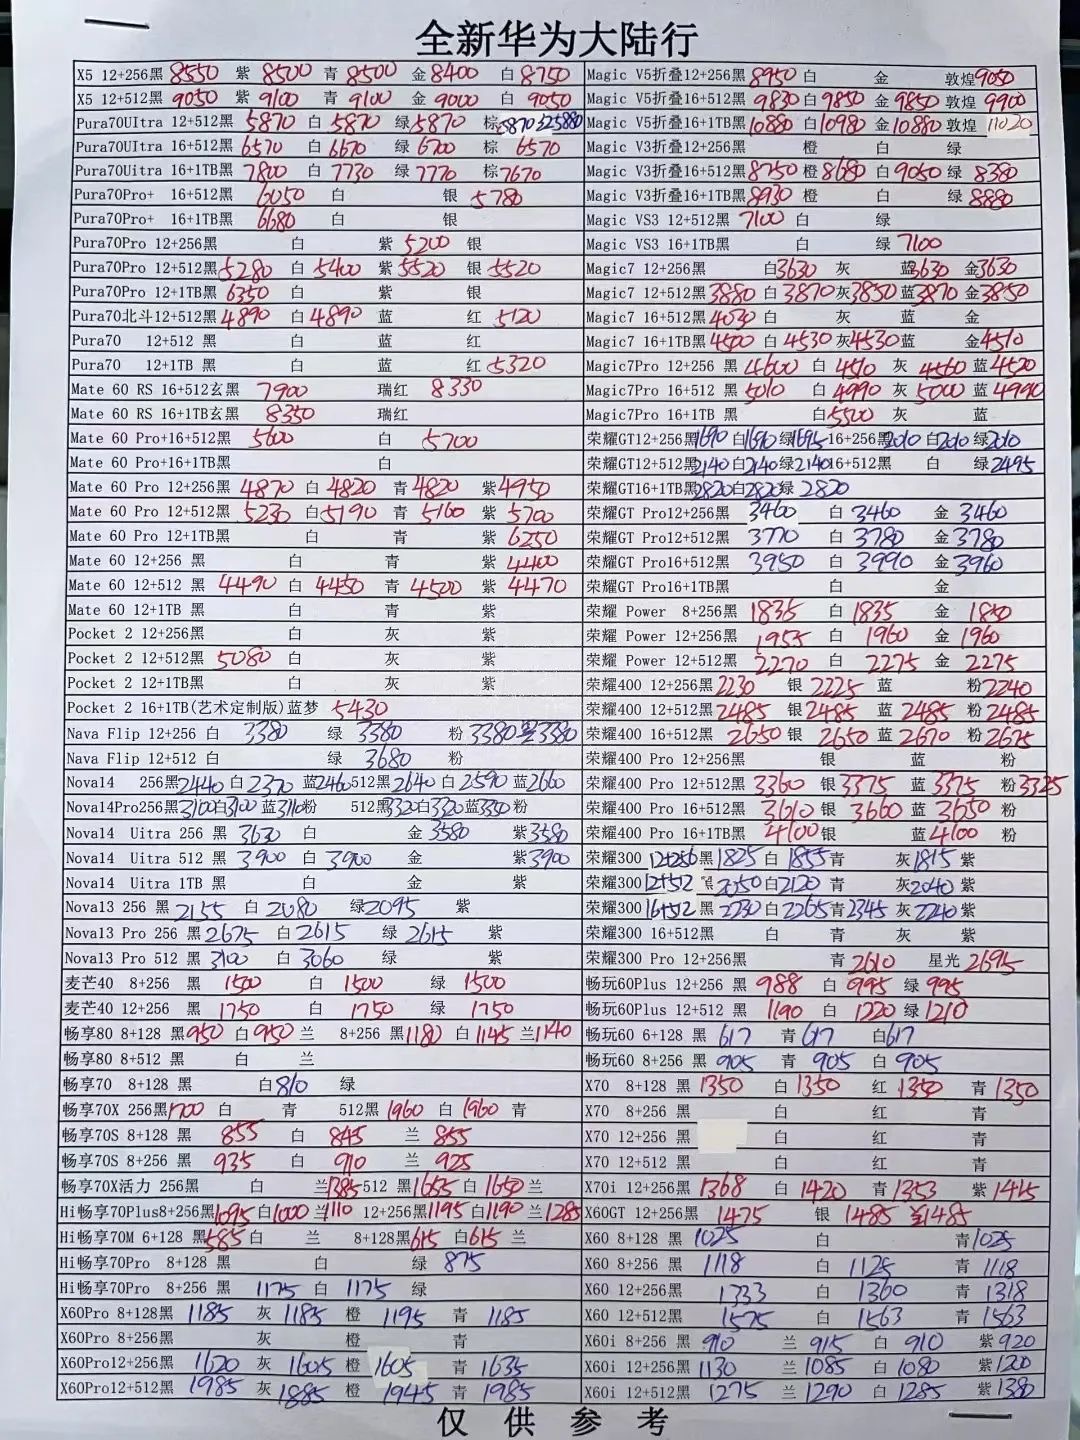 全新华为大陆行
X5 12+256黑 8550 紫 8500 青 8500 金 8400 白 8750
X5 12+512黑 9050 紫 9100 青 9100 金 9000 白 9050
Pura70UItra 12+512黑 5870 白 5870 绿 5870 棕
Pura70UItra 16+512黑 6570 白 6670 绿 6700 棕 6570
Pura70Uitra 16+1TB黑 7800 白 7730 绿 7770 棕 7670
Pura70Pro+ 16+512黑 6050 白 银 5780
Pura70Pro+ 16+1TB黑 6680 白 银
Pura70Pro 12+256黑 白 紫 5200 银
Pura70Pro 12+512黑 5280 白 5400 紫 5520 银 5520
Pura70Pro 12+1TB黑 6350 白 紫 银
Pura70北斗12+512黑 4890 白 4890 蓝 红 5120
Pura70 12+512 黑 白 蓝 红
Pura70 12+1TB 黑 白 蓝 红 5320
Mate 60 RS 16+512玄黑 7900 瑞红 8330
Mate 60 RS 16+1TB玄黑 8350 瑞红
Mate 60 Pro+16+512黑 5600 白 5700
Mate 60 Pro+16+1TB黑 白
Mate 60 Pro 12+256黑 4870 白 4820 青 4820 紫 4950
Mate 60 Pro 12+512黑 5230 白 5190 青 5160 紫 5700
Mate 60 Pro 12+1TB黑 白 青 紫 6250
Mate 60 12+256 黑 白 青 紫 4400
Mate 60 12+512 黑 4490 白 4450 青 4500 紫 4470
Mate 60 12+1TB 黑 白 青 紫
Pocket 2 12+256黑 白 灰 紫
Pocket 2 12+512黑 5080 白 灰 紫
Pocket 2 12+1TB黑 白 灰 紫
Pocket 2 16+1TB(艺术定制版)蓝梦 5430
Nava Flip 12+256 白 3380 绿 3380 粉 3380 3380
Nava Flip 12+512 白 绿 3680 粉
Nova14 256黑 2440 白 2370 蓝 2460 512黑 2640 白 2590 蓝 2660
Nova14Pro256黑 3100 白 3100 蓝 3110 粉 512黑 3320 白 3320 蓝 3350 粉
Nova14 Uitra 256 黑 3630 白 金 3580 紫 3580
Nova14 Uitra 512 黑 3900 白 3900 金 紫 3900
Nova14 Uitra 1TB 黑 白 金 紫
Nova13 256 黑 2155 白 2080 绿 2095 紫
Nova13 Pro 256 黑 2675 白 2615 绿 2615 紫
Nova13 Pro 512 黑 3100 白 3060 绿 紫
麦芒40 8+256 黑 1500 白 1500 绿 1500
麦芒40 12+256 黑 1750 白 1750 绿 1750
畅享80 8+128 黑 950 白 950 兰 8+256 黑 1180 白 1145 兰 1140
畅享80 8+512 黑 白 兰
畅享70 8+128 黑 白 810 绿
畅享70X 256黑 1700 白 青 512黑 1960 白 1960 青
畅享70S 8+128 黑 855 白 845 兰 855
畅享70S 8+256 黑 935 白 910 兰 925
畅享70X活力 256黑 白 兰 1385 512 黑 1655 白 1650 兰
Hi畅享70Plus8+256黑 1095 白 1000 兰 1110 12+256黑 1195 白 1190 兰 1285
Hi畅享70M 6+128 黑 585 白 兰 8+128黑 615 白 615 兰
Hi畅享70Pro 8+128黑 白 绿 875
Hi畅享70Pro 8+256 黑 1175 白 1175 绿
X60Pro 8+128黑 1185 灰 1185 橙 1195 青 1185
X60Pro 8+256黑 灰 橙 青
X60Pro12+256黑 1620 灰 1605 橙 1605 青 1635
X60Pro12+512黑 1985 灰 1885 橙 1945 青 1985
Magic V5折叠12+256黑 8950 白 金 敦煌 9050
Magic V5折叠16+512黑 9830 白 9850 金 9850 敦煌 9900
Magic V5折叠16+1TB黑 10880 白 10980 金 10880 敦煌 11020
Magic V3折叠12+256黑 橙 白 绿
Magic V3折叠16+512黑 8750 橙 8680 白 9050 绿 8380
Magic V3折叠16+1TB黑 8930 橙 白 绿 8880
Magic VS3 12+512黑 7100 白 绿
Magic VS3 16+1TB黑 白 绿 7100
Magic7 12+256黑 白 3630 灰 蓝 3630 金 3630
Magic7 12+512黑 3880 白 3870 灰 3850 蓝 3870 金 3850
Magic7 16+512黑 4030 白 灰 蓝 金
Magic7 16+1TB黑 4500 白 4530 灰 4530 蓝 金 4510
Magic7Pro 12+256 黑 4600 白 4510 灰 4560 蓝 4520
Magic7Pro 16+512 黑 5010 白 4990 灰 5000 蓝 4990
Magic7Pro 16+1TB 黑 白 5500 灰 蓝
荣耀GT12+256黑 1690 白 1690 绿 1695 16+256黑 2010 白 2010 绿 2010
荣耀GT12+512黑 2140 白 2140 绿 2140 16+512黑 白 绿 2495
荣耀GT16+1TB黑 2820 白 2820 绿 2820
荣耀GT Pro12+256黑 3460 白 3460 金 3460
荣耀GT Pro12+512黑 3770 白 3780 金 3780
荣耀GT Pro16+512黑 3950 白 3990 金 3960
荣耀GT Pro16+1TB黑 白 金
荣耀 Power 8+256黑 1835 白 1835 金 1850
荣耀 Power 12+256黑 1955 白 1960 金 1960
荣耀 Power 12+512黑 2270 白 2275 金 2275
荣耀400 12+256黑 2230 银 2225 蓝 粉 2240
荣耀400 12+512黑 2485 银 2485 蓝 2485 粉 2485
荣耀400 16+512黑 2650 银 2650 蓝 2670 粉 2675
荣耀400 Pro 12+256黑 银 蓝 粉
荣耀400 Pro 12+512黑 3360 银 3375 蓝 3375 粉 3325
荣耀400 Pro 16+512黑 3610 银 3660 蓝 3650 粉
荣耀400 Pro 16+1TB黑 4100 银 蓝 4100 粉
荣耀300 12+256 黑 1825 白 1855 青 灰 1815 紫
荣耀300 12+512 黑 2050 白 2120 青 灰 2040 紫
荣耀300 16+512 黑 2230 白 2265 青 2345 灰 2240 紫
荣耀300 16+512黑 白 青 灰 紫
荣耀300 Pro 12+256黑 青 2610 星光 2695
畅玩60Plus 12+256 黑 988 白 995 绿 995
畅玩60Plus 12+512 黑 1190 白 1220 绿 1210
畅玩60 6+128 黑 617 青 617 白 617
畅玩60 8+256 黑 905 青 905 白 905
X70 8+128 黑 1350 白 1350 红 1350 青 1350
X70 8+256 黑 白 红 青
X70 12+256 黑 白 红 青
X70 12+512 黑 白 红 青
X70i 12+256黑 1368 白 1420 青 1353 紫 1415
X60GT 12+256黑 1475 银 1485 1485
X60 8+128 黑 1025 白 青 1025
X60 8+256 黑 1118 白 1125 青 1118
X60 12+256黑 1333 白 1360 青 1318
X60 12+512黑 1575 白 1563 青 1563
X60i 8+256 黑 910 兰 915 白 910 紫 920
X60i 12+256黑 1130 兰 1085 白 1080 紫 1200
X60i 12+512黑 1275 兰 1290 白 1285 紫 1380
仅供参考